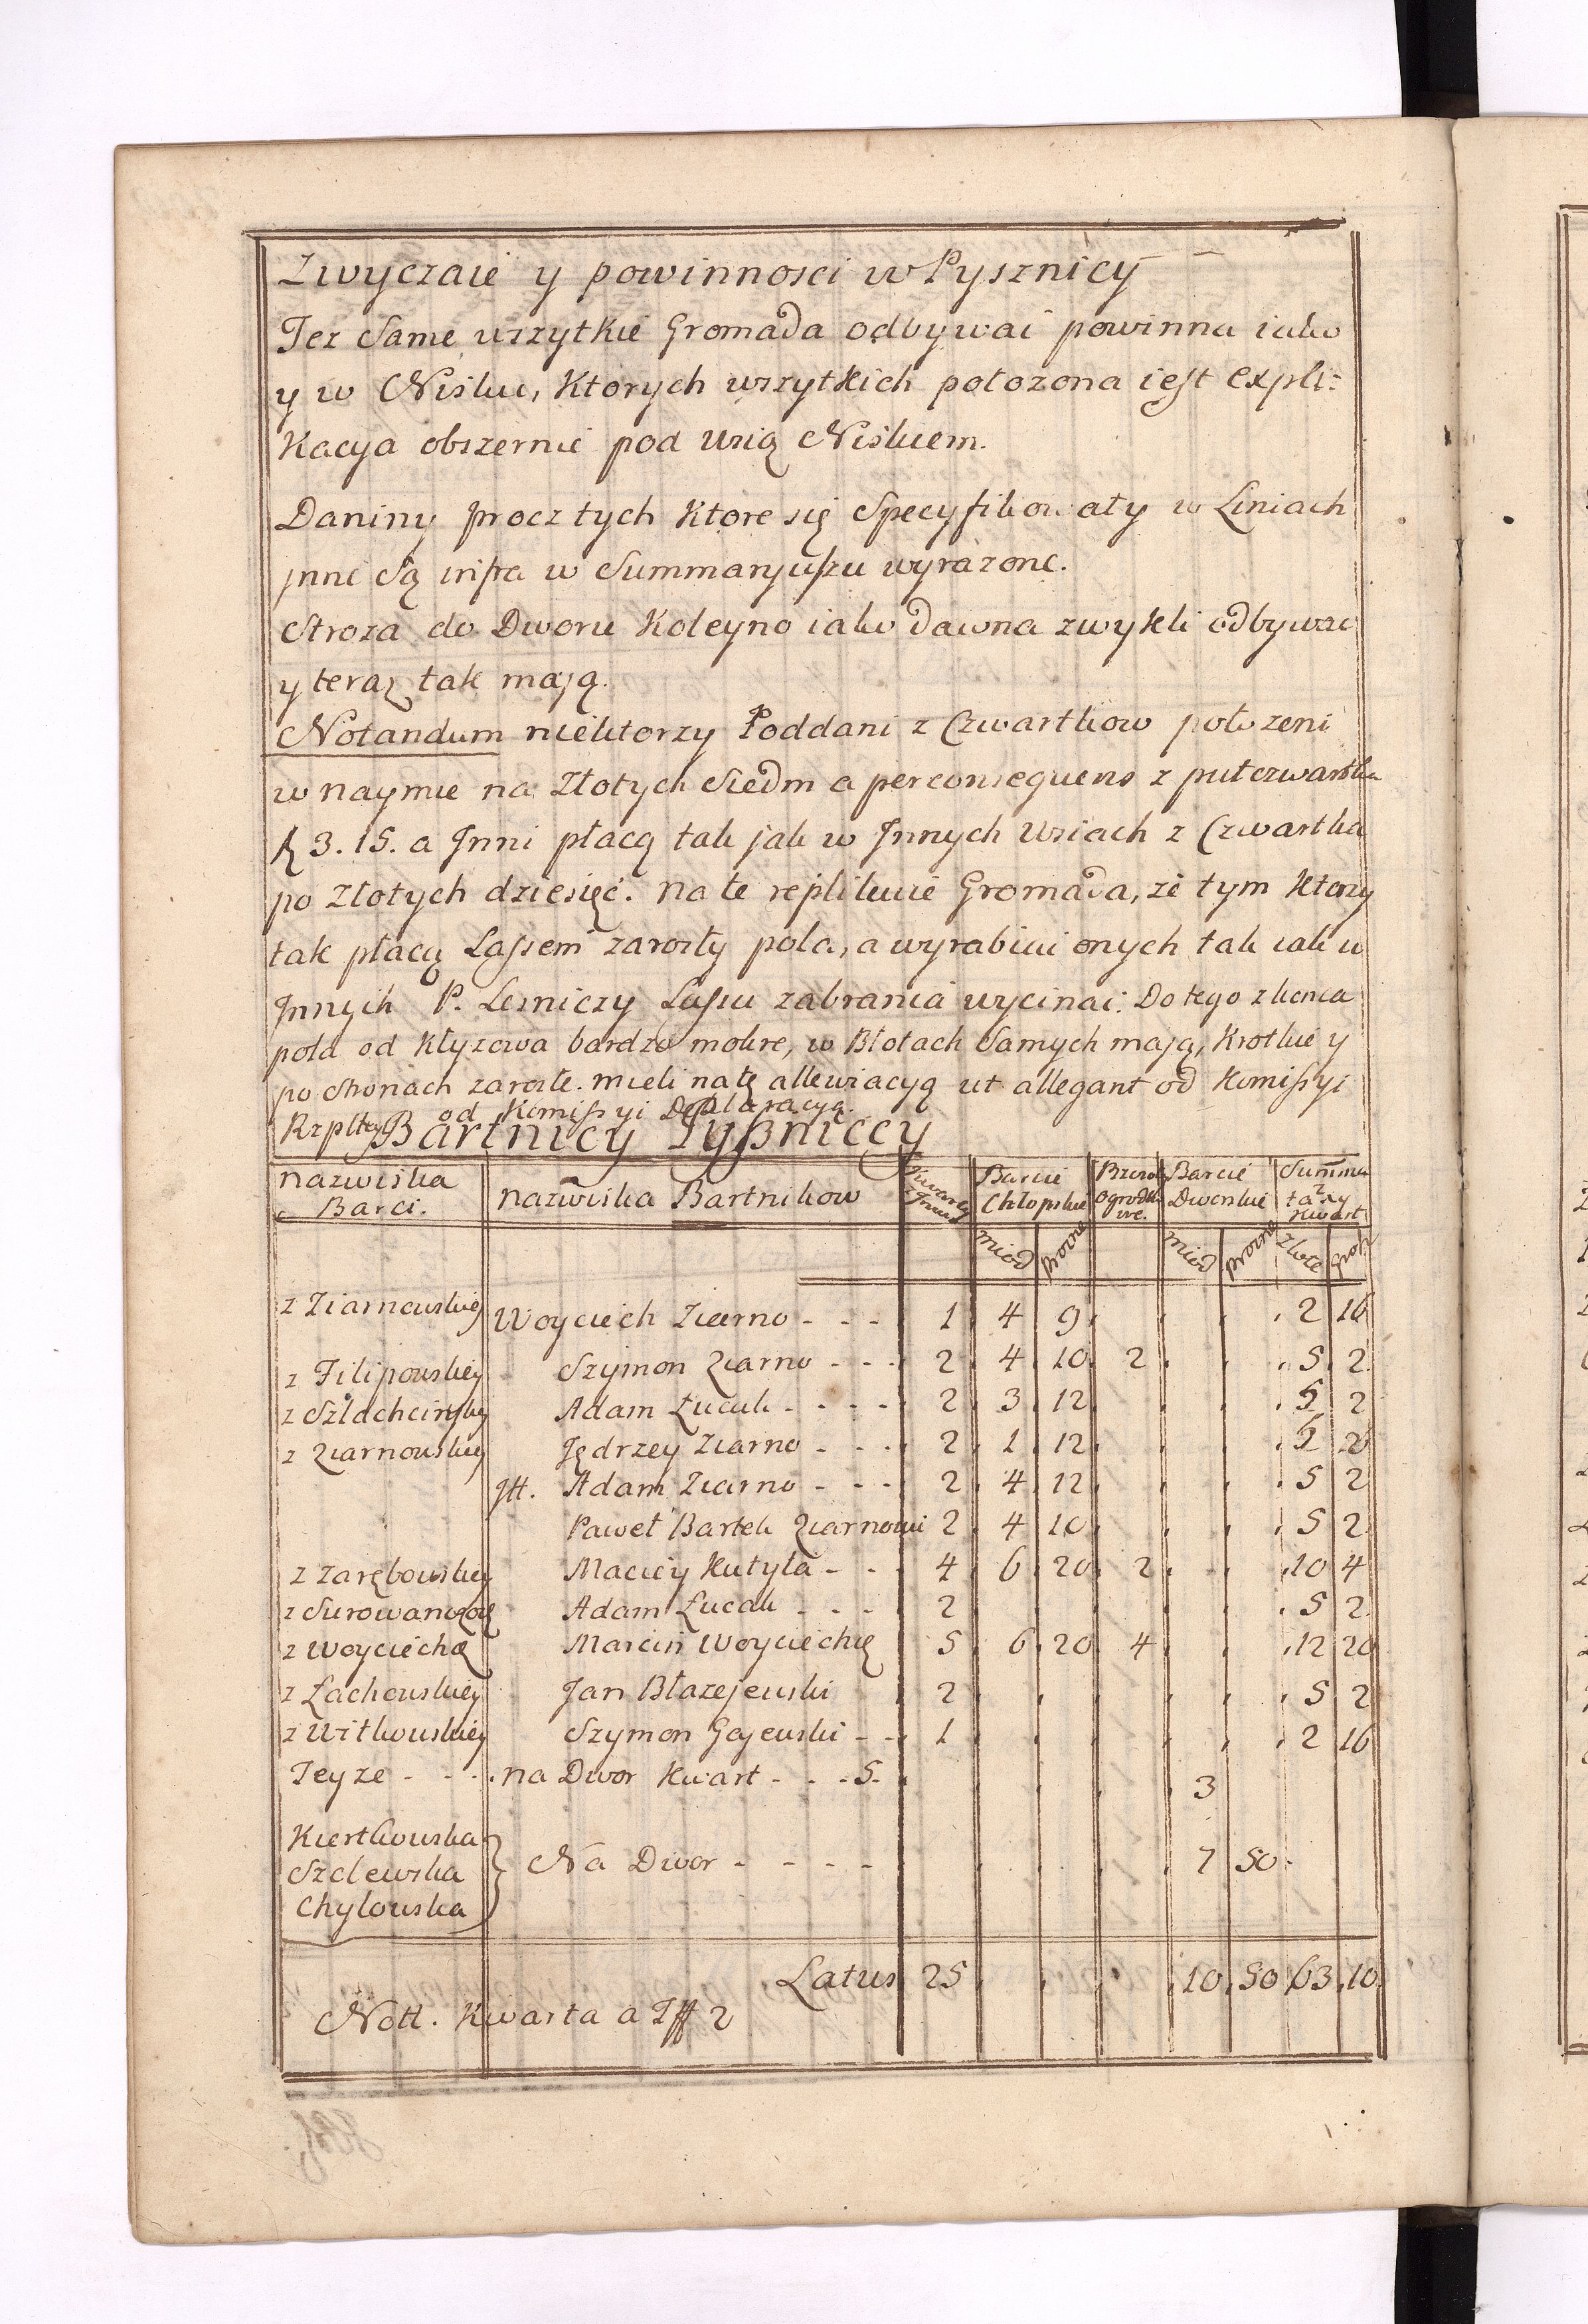 Zwyczaie y powinnosci w Pysznicy
Tez Same wszytkie Gromada odbywai powinna iako
y w Nisku, Ktorych wszytkich położona iest expli=
Kacya obszernie pod Wsią Niskiem.
Daniny procz tych Ktore się Specyfikowały w Liniach
jnne Są infra w Summaryuszu wyrażone.
Stroza do Dworu Koleyno iako dawna zwykli odbywac
y teraz tak mają.
Notandum niektorzy Poddani z Czwartkow położeni
w naymie na Złotych Siedm a perconsequens z pułczwartka
3. 15. a Jnni płacą tak jak w Jnnych Wsiach z Czwartka
po Złotych dziesięć. na te replikuie Gromada, że tym Ktorzy
tak płacą Lassem zarosły pola, a wyrabiui onych tak iak w
Jnnych P. Lesniczy Lassu zabrania wycinai. Do tego z konca
pola od Kłyzowa bardzo mokre, w Błotach Samych mają, Krotkie y
po Stronach zarosłe. mieli na tę allewiacyą ut allegant od Komissyi
Rzpltey od Komissyi Deklaracyą.
Bartnicy Pyßniccy
nazwiska Barci. nazwiska Bartnikow Barcie Chłopskie Barcie Dworskie Summa z tary Kwart
miod prozne miod prozne złote grosz
z Ziarnowskiey Woyciech Ziarno - - - 1 4 9 2 16
z Filipowskiey Szymon Ziarno - - - 2 4 10 2 5 2
z Szlachcinskey Adam Łucak - - - - 2 3 12 5 2
z Ziarnowskiey Jędrzey Ziarno - - - 2 1 12 5 2
Jtt. Adam Ziarno - - - 2 4 12 5 2
Paweł Bartek Ziarnowi 2 4 10 5 2
z Zarębowskiey Maciey Kutyła - - 4 6 20 2 10 4
z Surowanczą Adam Łucak - - - 2 5 2
z Woyciechą Marcin Woyciechą 5 6 20 4 12 20
z Lachowskiey Jan Błazejewski 2 5 2
z Witkowskiey Szymon Gajewski - - 1 2 16
Teyze - - - na Dwor Kwart - - - 5. 3
Kiertkowska
Szelewska } Na Dwor - - - - 7 50
Chylowska
Latus 25 10 50 63 10
Nott. Kwarta a 2